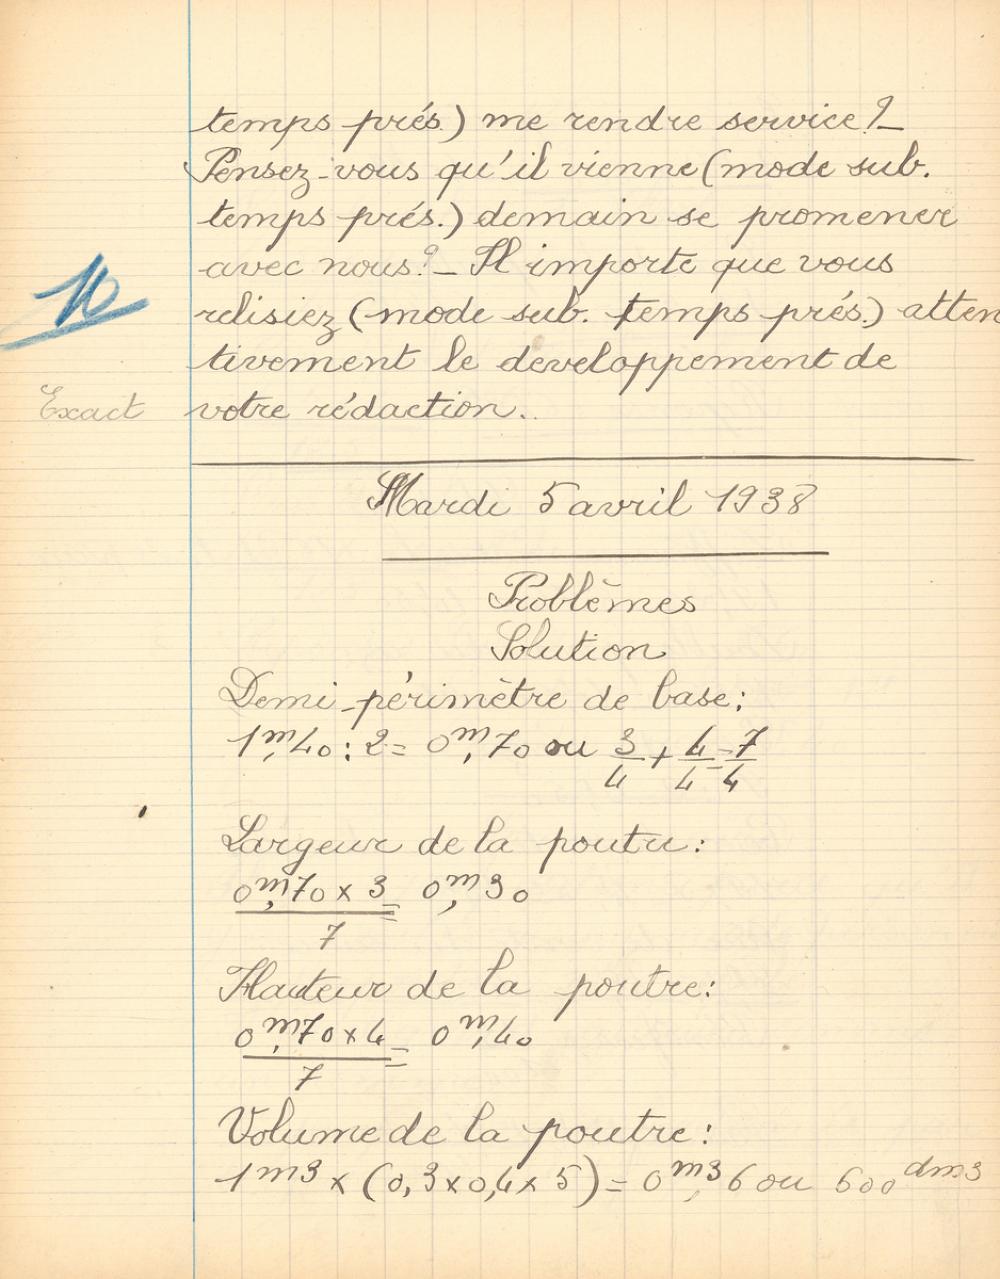 temps prés.) me rendre service ? _
Pensez-vous qu'il vienne (mode sub.
temps prés.) demain se promener
avec nous ? _ Il importe que vous
10
relisiez (mode sub. temps prés.) atten
tivement le developpement de
Exact votre rédaction.
Mardi 5 avril 1938
Problèmes
Solution
Demi-périmètre de base :
1m,40 : 2 = 0m,70 ou 3/4 + 4/4 = 7/4
Largeur de la poutre :
0m,70 x 3 = 0m,30
7
Hauteur de la poutre :
0m,70 x 4 = 0m,40
7
Volume de la poutre :
1m3 x (0,3 x 0,4 x 5) = 0m3,6 ou 600dm3